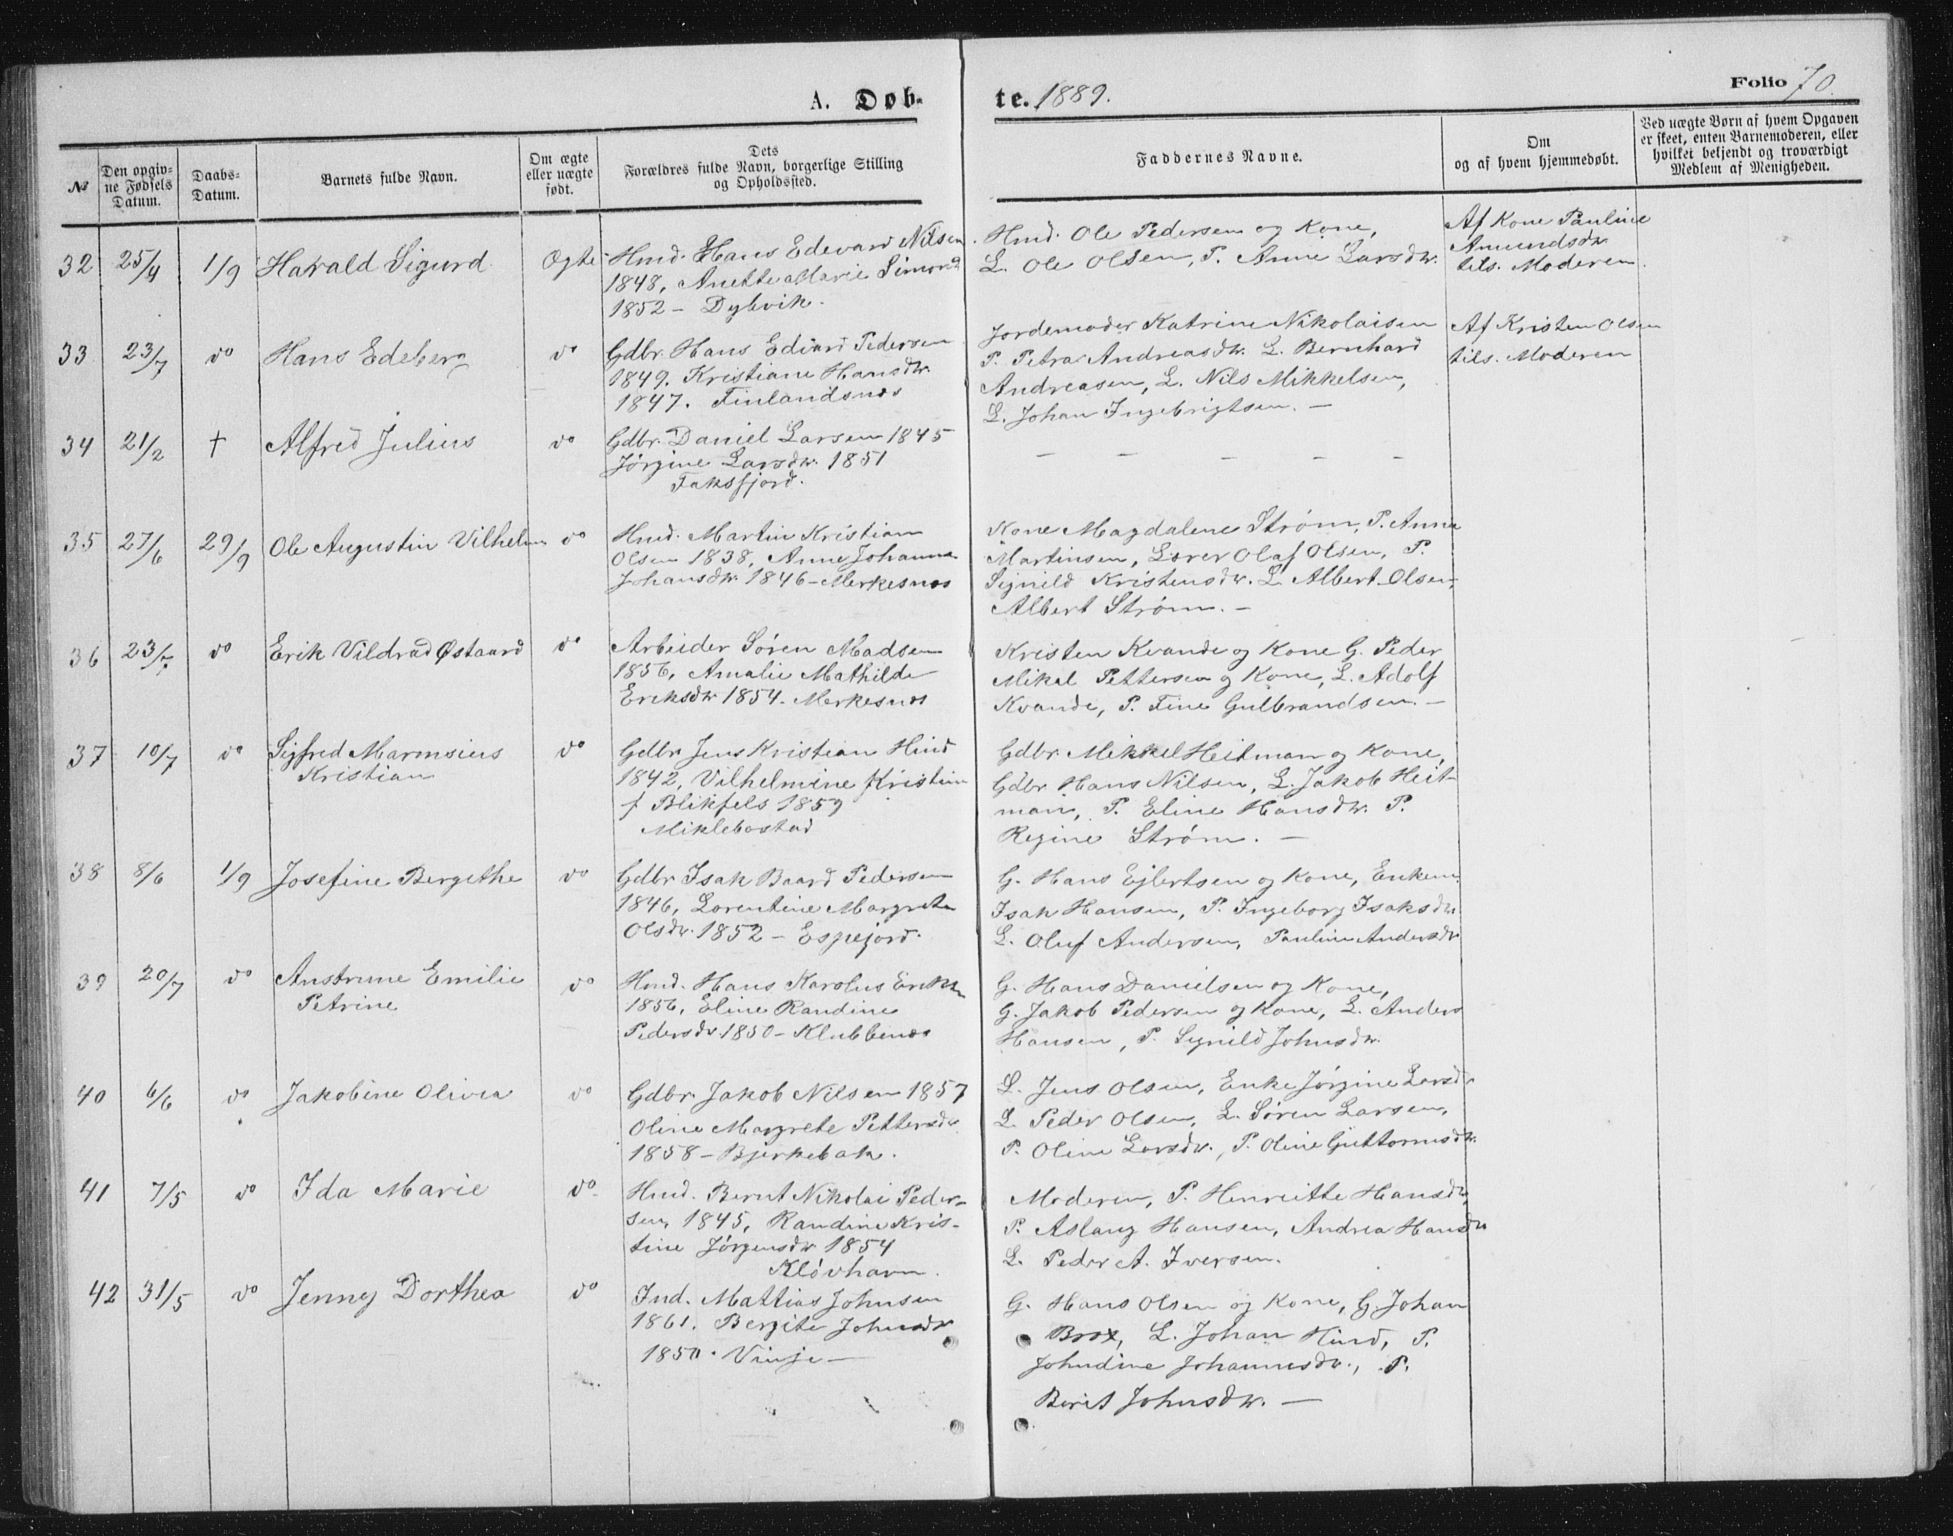 A. Døb-
te. 1889.
Folio 70.
№
Den opgiv-
ne Fødsels
Datum.
Daabs-
Datum.
Barnets fulde Navn.
Om ægte
eller uægte
født.
Dets
Forældres fulde Navn, borgerlige Stilling
og Opholdssted.
Faddernes Navne.
Om
og af hvem hjemmedøbt.
Ved uægte Børn af hvem Opgaven
er skeet, enten Barnemoderen, eller
hvilket bekjendt og troværdigt
Medlem af Menigheden.
32 25/4 1/9 Harald Sigurd Ægte
Hmd. Hans Edevard Nilsen
1848, Anette Marie Simonsd
1852 - Dybvik.
Hmd. Ole Pedersen og Kone,
L. Ole Olsen, P. Anne Larsdtr.
Af Kone Pauline
Amundsdtr
tils. Moderen
33 23/7 do Hans Edeberg do
Gdbr. Hans Edvard Pedersen
1849. Kristiane Hansdtr
1847. Finlandsnes
Jordemoder Katrine Nikolaisen
P. Petra Andreasdtr. L. Bernhard
Andreasen, L. Nils Mikkelsen,
L. Johan Ingebrigtsen. -
Af Kristen Olsen
tils. Moderen
34 21/2 † Alfred Julius do
Gdbr. Daniel Larsen 1845
Jørgine Larsdtr. 1851
Faksfjord.
- - - - -
35 27/6 29/9 Ole Augustin Vilhelm do
Hmd. Martin Kristian
Olsen 1838, Anne Johanna
Johansdtr. 1846 - Merkesnes
Kone Magdalene Strøm, P. Anna
Martinsen, Lærer Olaf Olsen, P.
Signild Kristensdtr. L. Albert Olsen,
Albert Strøm. -
36 23/7 do Erik Vildrad Østaard do
Arbeider Søren Madsen
1856, Amalie Mathilde
Eriksdtr 1854. Merkesnes
Kristen Kvande og Kone G. Peder
Mikal Pettersen og Kone, L. Adolf
Kvande, P. Tine Gulbrandsen. -
37 10/7 do Sigfred Marensius
Kristian do
Gdbr. Jens Kristian Hind
1842, Vilhelmine Kristine
f Blikfels 1859
Miklebostad
Gdbr. Mikkel Heitman og Kone,
Gdbr. Hans Nilsen, L. Jakob Heit-
man, P. Eline Hansdtr. P.
Regine Strøm. -
38 8/6 1/9 Josefine Bergithe do
Gdbr Isak Baard Pedersen
1846, Lorentine Margrete
Olsdtr. 1852 - Espejord.
G. Hans Ejlertsen og Kone, Enkem.
Isak Hansen, P. Ingeborg Isaksdtr
L. Oluf Andersen, Pauline Andersdtr
39 20/7 do Anstrune Emilie
Petrine do
Hmd. Hans Karolus Eriksen
1856, Eline Randine
Pedersdtr 1850 - Klubbenes
G. Hans Danielsen og Kone,
G. Jakob Pedersen og Kone, L. Anders
Hansen, P. Signild Johnsdtr.
40 6/6 do Jakobine Olivia do
Gdbr. Jakob Nilsen 1857
Oline Margrete Pettersdtr.
1858 - Bjerkebak.
L. Jens Olsen, Enke Jørgine Larsdtr
L. Peder Olsen, L. Søren Larsen,
P. Oline Larsdtr., P. Oline Guttormsdtr.
41 7/5 do Ida Marie do
Hmd. Bernt Nikolai Peder-
sen, 1845, Randine Kris-
tine Jørgensdtr 1854
Kløvhavn.
Moderen, P. Henriette Hansdtr,
P. Aslaug Hansen, Andrea Hansdtr
L. Peder A. Iversen.
42 31/5 do Jenny Dorthea do
Ind. Mattias Johnsen
1861. Bergite Johnsdtr
1850. Vinje -
G. Hans Olsen og Kone, G. Johan
Brox, L. Johan Hind, P.
Johndine Johannesdtr., P.
Berit Johnsdtr. -